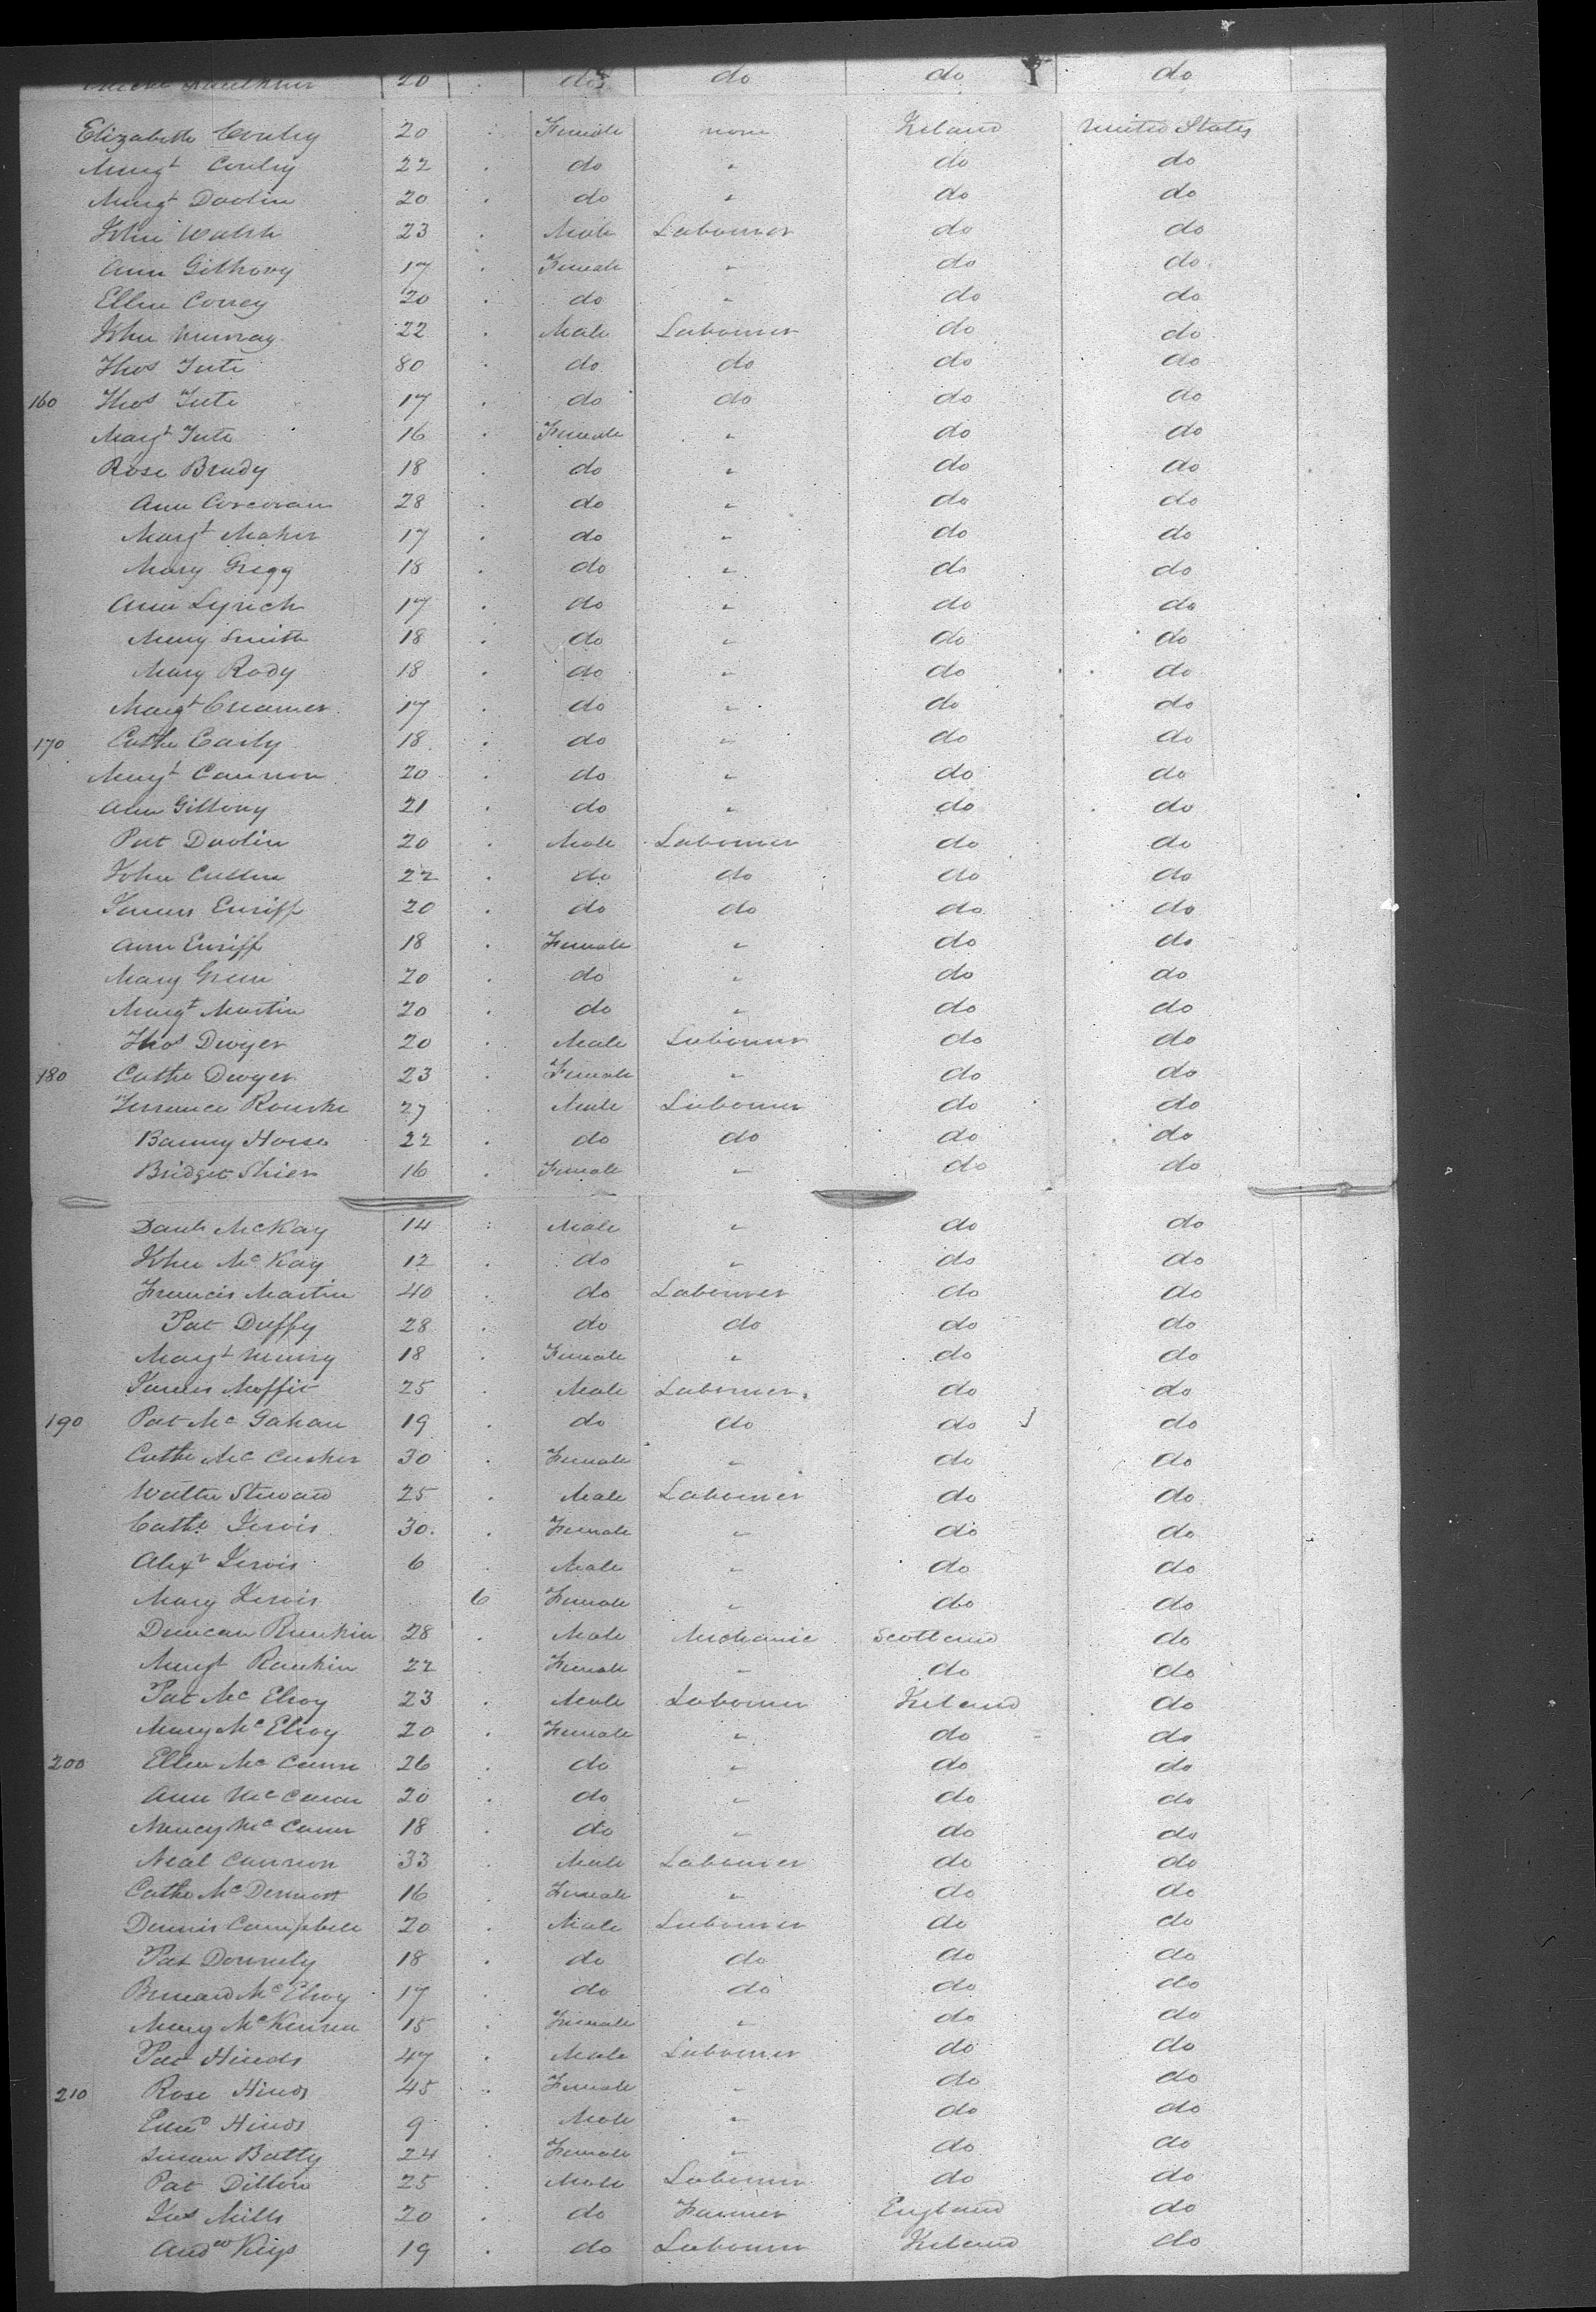 20 do do do do
Elizabeth Conley 20 Female none Ireland United States
Margt Conley 22 do " do do
Margt Doolin 20 do " do do
John Walsh 23 Male Labourer do do
Ann Gilhooy 17 Female " do do
Ellen Correy 20 do " do do
John Murray 22 Male Labourer do do
Thos Tute 80 do do do do
160 Thos Tute 17 do do do do
Margt Tute 16 Female " do do
Rose Brady 18 do " do do
Ann Corcoran 28 do " do do
Margt Maher 17 do " do do
Mary Gregg 18 do " do do
Ann Lynch 17 do " do do
Mary Smith 18 do " do do
Mary Rody 18 do " do do
Margt Creamer 17 do " do do
170 Cathe Early 18 do " do do
Margt Cannon 20 do " do do
Ann Gillooy 21 do " do do
Pat Doolin 20 Male Labourer do do
John Cullen 22 do do do do
James Enriff 20 do do do do
Ann Enriff 18 Female " do do
Mary Green 20 do " do do
Margt Martin 20 do " do do
Thos Dwyer 20 Male Labourer do do
180 Cathe Dwyer 23 Female " do do
Terrence Rourke 27 Male Labourer do do
Barney 22 do do do do
Bridget Shier 16 Female " do do
Danl McKay 14 Male " do do
John McKay 12 do " do do
Francis Martin 40 do Labourer do do
Pat Duffy 28 do do do do
Margt Murry 18 Female " do do
James Moffit 25 Male Labourer do do
190 Pat McGahan 19 do do do do
Cathe McCusker 30 Female " do do
Walter Steward 25 Male Labourer do do
Cathe Jervis 30 Female " do do
Alexr Jervis 6 Male " do do
Mary Jervis 6 Female " do do
Duncan Rankin 28 Male Mechanic Scotland do
Margt Rankin 22 Female " do do
Pat McElroy 23 Male Labourer Ireland do
Mary McElroy 20 Female " do do
200 Ellen McCann 26 do " do do
Ann McCann 20 do " do do
Nancy McCann 18 do " do do
Neal Cannon 33 Male Labourer do do
Cathe McDermott 16 Female " do do
Dennis Campbell 20 Male Labourer do do
Pat Donnely 18 do do do do
Bernard McElroy 17 do do do do
Mary McKenna 15 Female " do do
Pat Hinds 47 Male Labourer do do
210 Rose Hinds 45 Female " do do
Edwd Hinds 9 Male " do do
Susan Batty 24 Female " do do
Pat Dillon 25 Male Labourer do do
Jas Mills 20 do Farmer England do
Andw Keys 19 do Labourer Ireland do